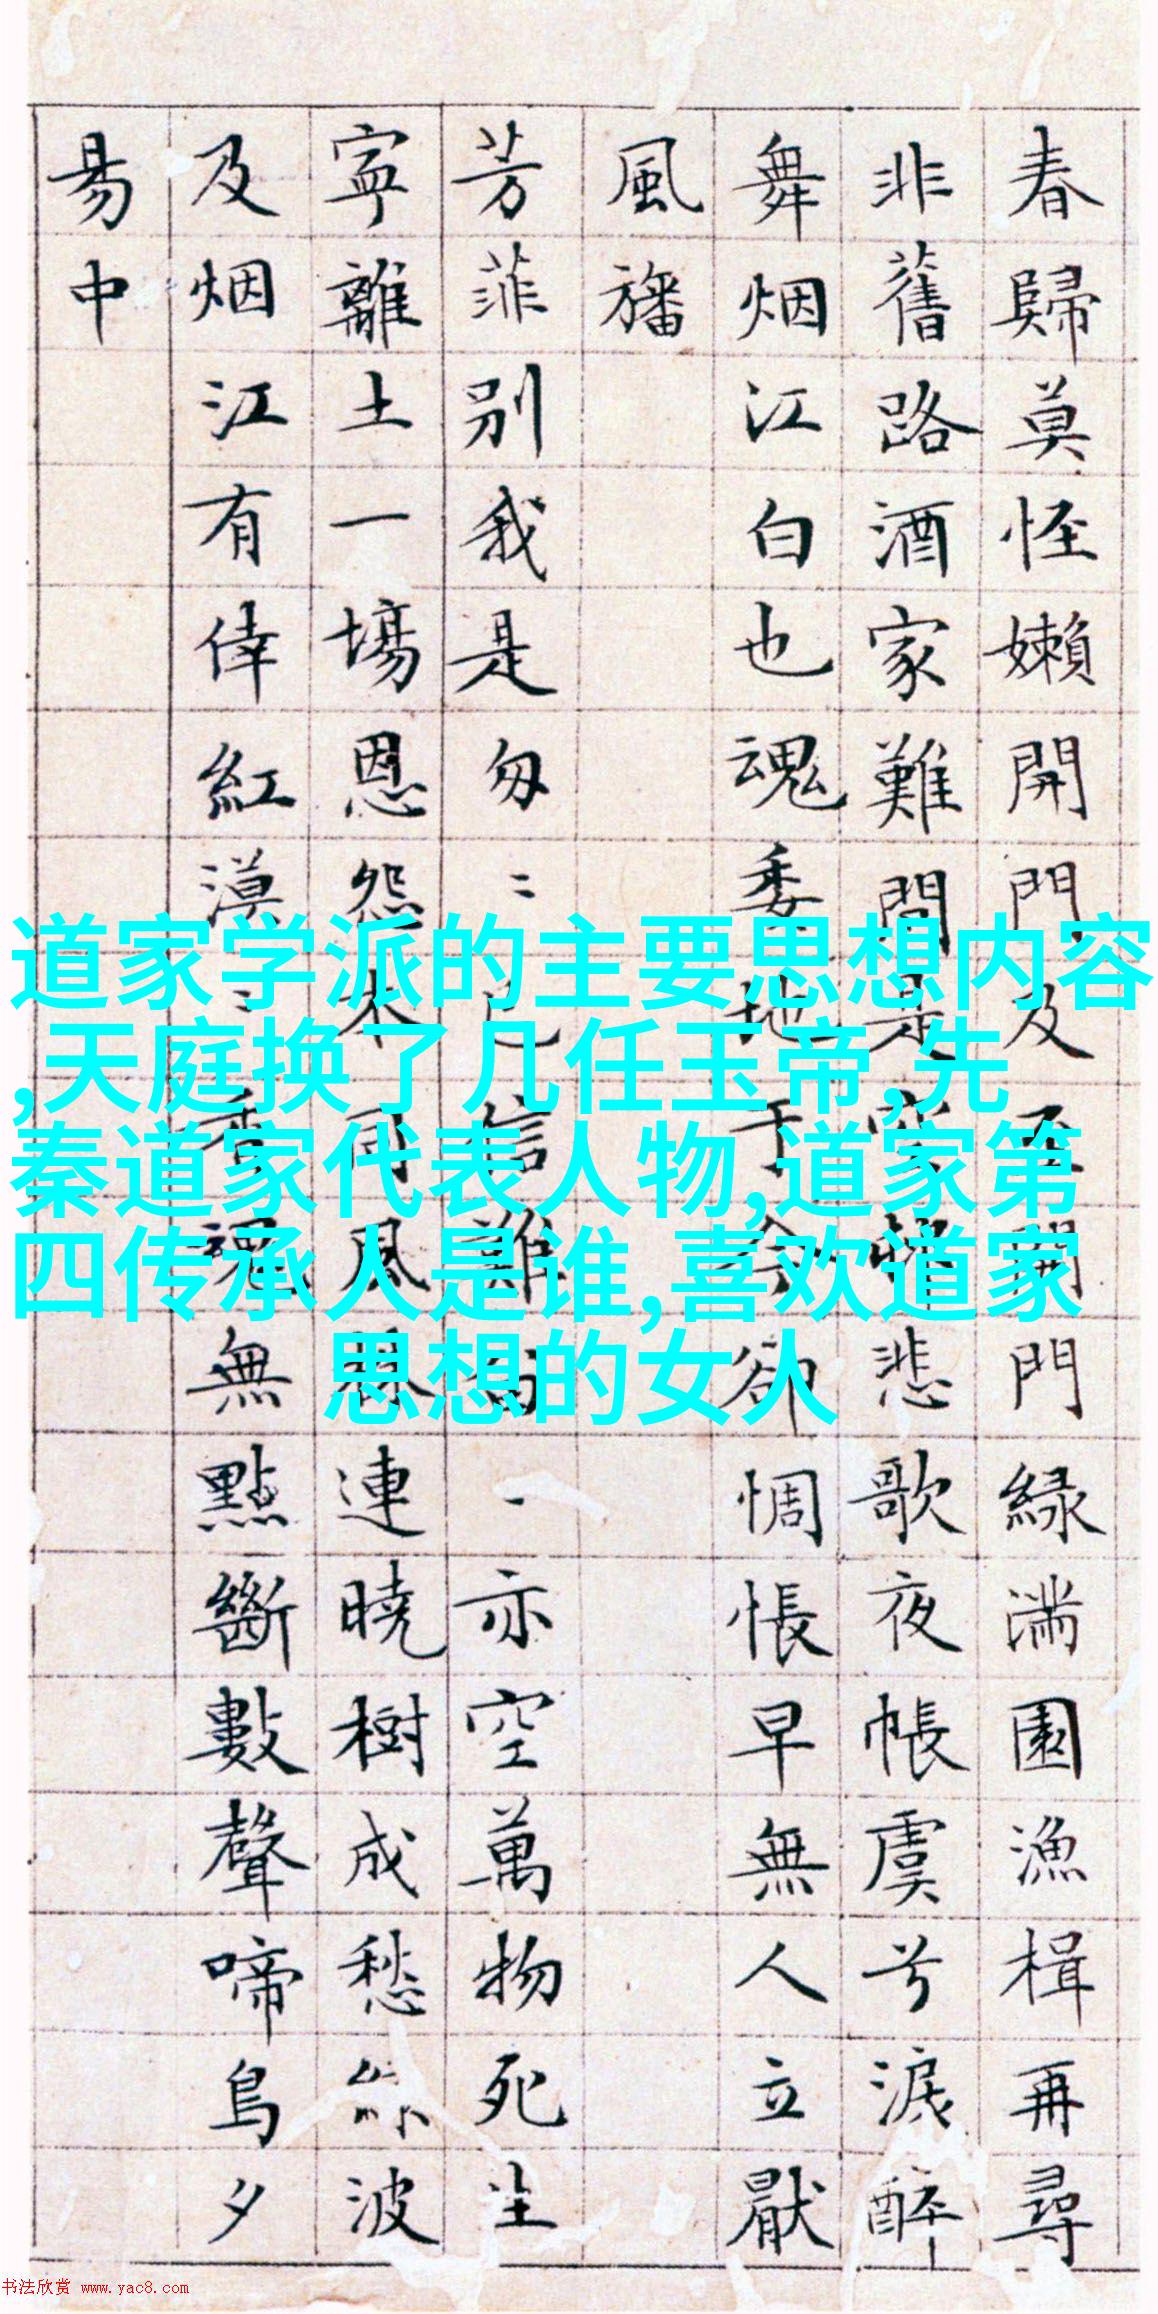 春歸莫怪嬾開門及至開門緑滿園漁楫再尋
非舊路酒家難問是空村悲歌夜帳虞兮淚醉
舞烟江白也魂委地于今卻惆悵早無人立厭
風旛
芳菲别我是匆〻已信難留一亦空萬物死生
寧離土一場恩怨本同風株連曉樹成愁緑波
及烟江有倖紅漠〻香魂無點斷數聲啼鳥夕
昜中
道家学派的主要思想内容
,天庭换了几任玉帝,先
秦道家代表人物,道家第
四传承人是谁,喜欢道家
思想的女人
书法欣赏 www.yac8.com